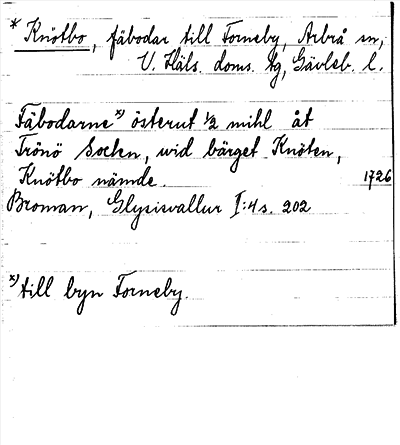 * Knötbo, fäbodar till Forneby, Arbrå sn,
V. Häls. doms. tg, Gävleb. l.
Fäbodarne x) österut 1/2 mihl åt
Trönö Socken, wid bärget Knöten,
Knötbo nämde. 1726
Broman, Glysisvallur I:4 s. 202
x) till byn Forneby.